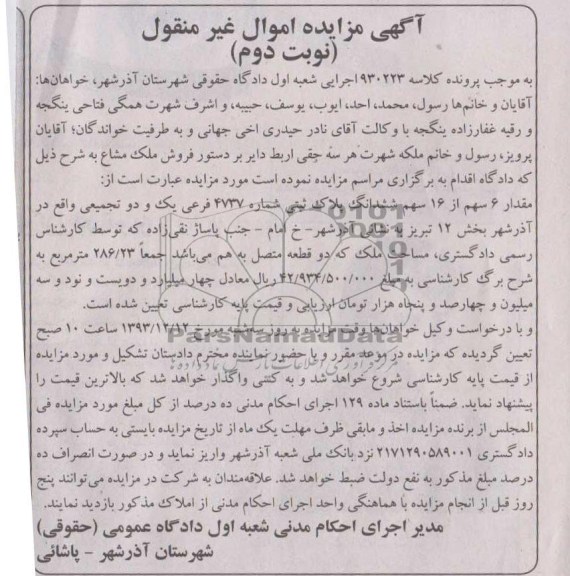 آگهی مزایده اموال غیر منقول
(نوبت دوم)
به موجب پرونده کلاسه ۹۳۰۲۲۳ اجرایی شعبه اول دادگاه حقوقی شهرستان آذرشهر، خواهان‌ها:
آقایان و خانم‌ها رسول، محمد، احد، ایوب، یوسف، حبیبه، و اشرف شهرت همگی فتاحی ینگجه
و رقیه غفارزاده ینگجه با وکالت آقای نادر حیدری اخی جهانی و به طرفیت خواندگان؛ آقایان
پرویز، رسول و خانم ملکه شهرت هر سه چقی اربط دایر بر دستور فروش ملک مشاع به شرح ذیل
که دادگاه اقدام به برگزاری مراسم مزایده نموده است مورد مزایده عبارت است از:
مقدار ۶ سهم از ۱۶ سهم ششدانگ پلاک ثبتی شماره ۴۷۳۷ فرعی یک و دو تجمیعی واقع در
آذرشهر بخش ۱۲ تبریز به نشانی آذرشهر - خ امام - جنب پاساژ نقی‌زاده که توسط کارشناس
رسمی دادگستری، مساحت ملک که دو قطعه متصل به هم می‌باشد جمعاً ۲۸۶/۲۳ مترمربع به
شرح برگ کارشناسی به مبلغ ۴۲/۹۳۴/۵۰۰/۰۰۰ ریال معادل چهار میلیارد و دویست و نود و سه
میلیون و چهارصد و پنجاه هزار تومان ارزیابی و قیمت پایه کارشناسی تعیین شده است.
و با درخواست وکیل خواهان‌ها وقت مزایده به روز سه‌شنبه مورخ ۱۳۹۳/۱۲/۱۲ ساعت ۱۰ صبح
تعیین گردیده که مزایده در موعد مقرر و با حضور نماینده محترم دادستان تشکیل و مورد مزایده
از قیمت پایه کارشناسی شروع خواهد شد و به کسی واگذار خواهد شد که بالاترین قیمت را
پیشنهاد نماید. ضمناً باستناد ماده ۱۲۹ اجرای احکام مدنی ده درصد از کل مبلغ مورد مزایده فی
المجلس از برنده مزایده اخذ و مابقی ظرف مهلت یک ماه از تاریخ مزایده بایستی به حساب سپرده
دادگستری ۲۱۷۱۲۹۰۵۸۹۰۰۱ نزد بانک ملی شعبه آذرشهر واریز نماید و در صورت انصراف ده
درصد مبلغ مذکور به نفع دولت ضبط خواهد شد. علاقه‌مندان به شرکت در مزایده می‌توانند پنج
روز قبل از انجام مزایده با هماهنگی واحد اجرای احکام مدنی از املاک مذکور بازدید نمایند.
مدیر اجرای احکام مدنی شعبه اول دادگاه عمومی (حقوقی)
شهرستان آذرشهر - پاشائی
ParsNamadData